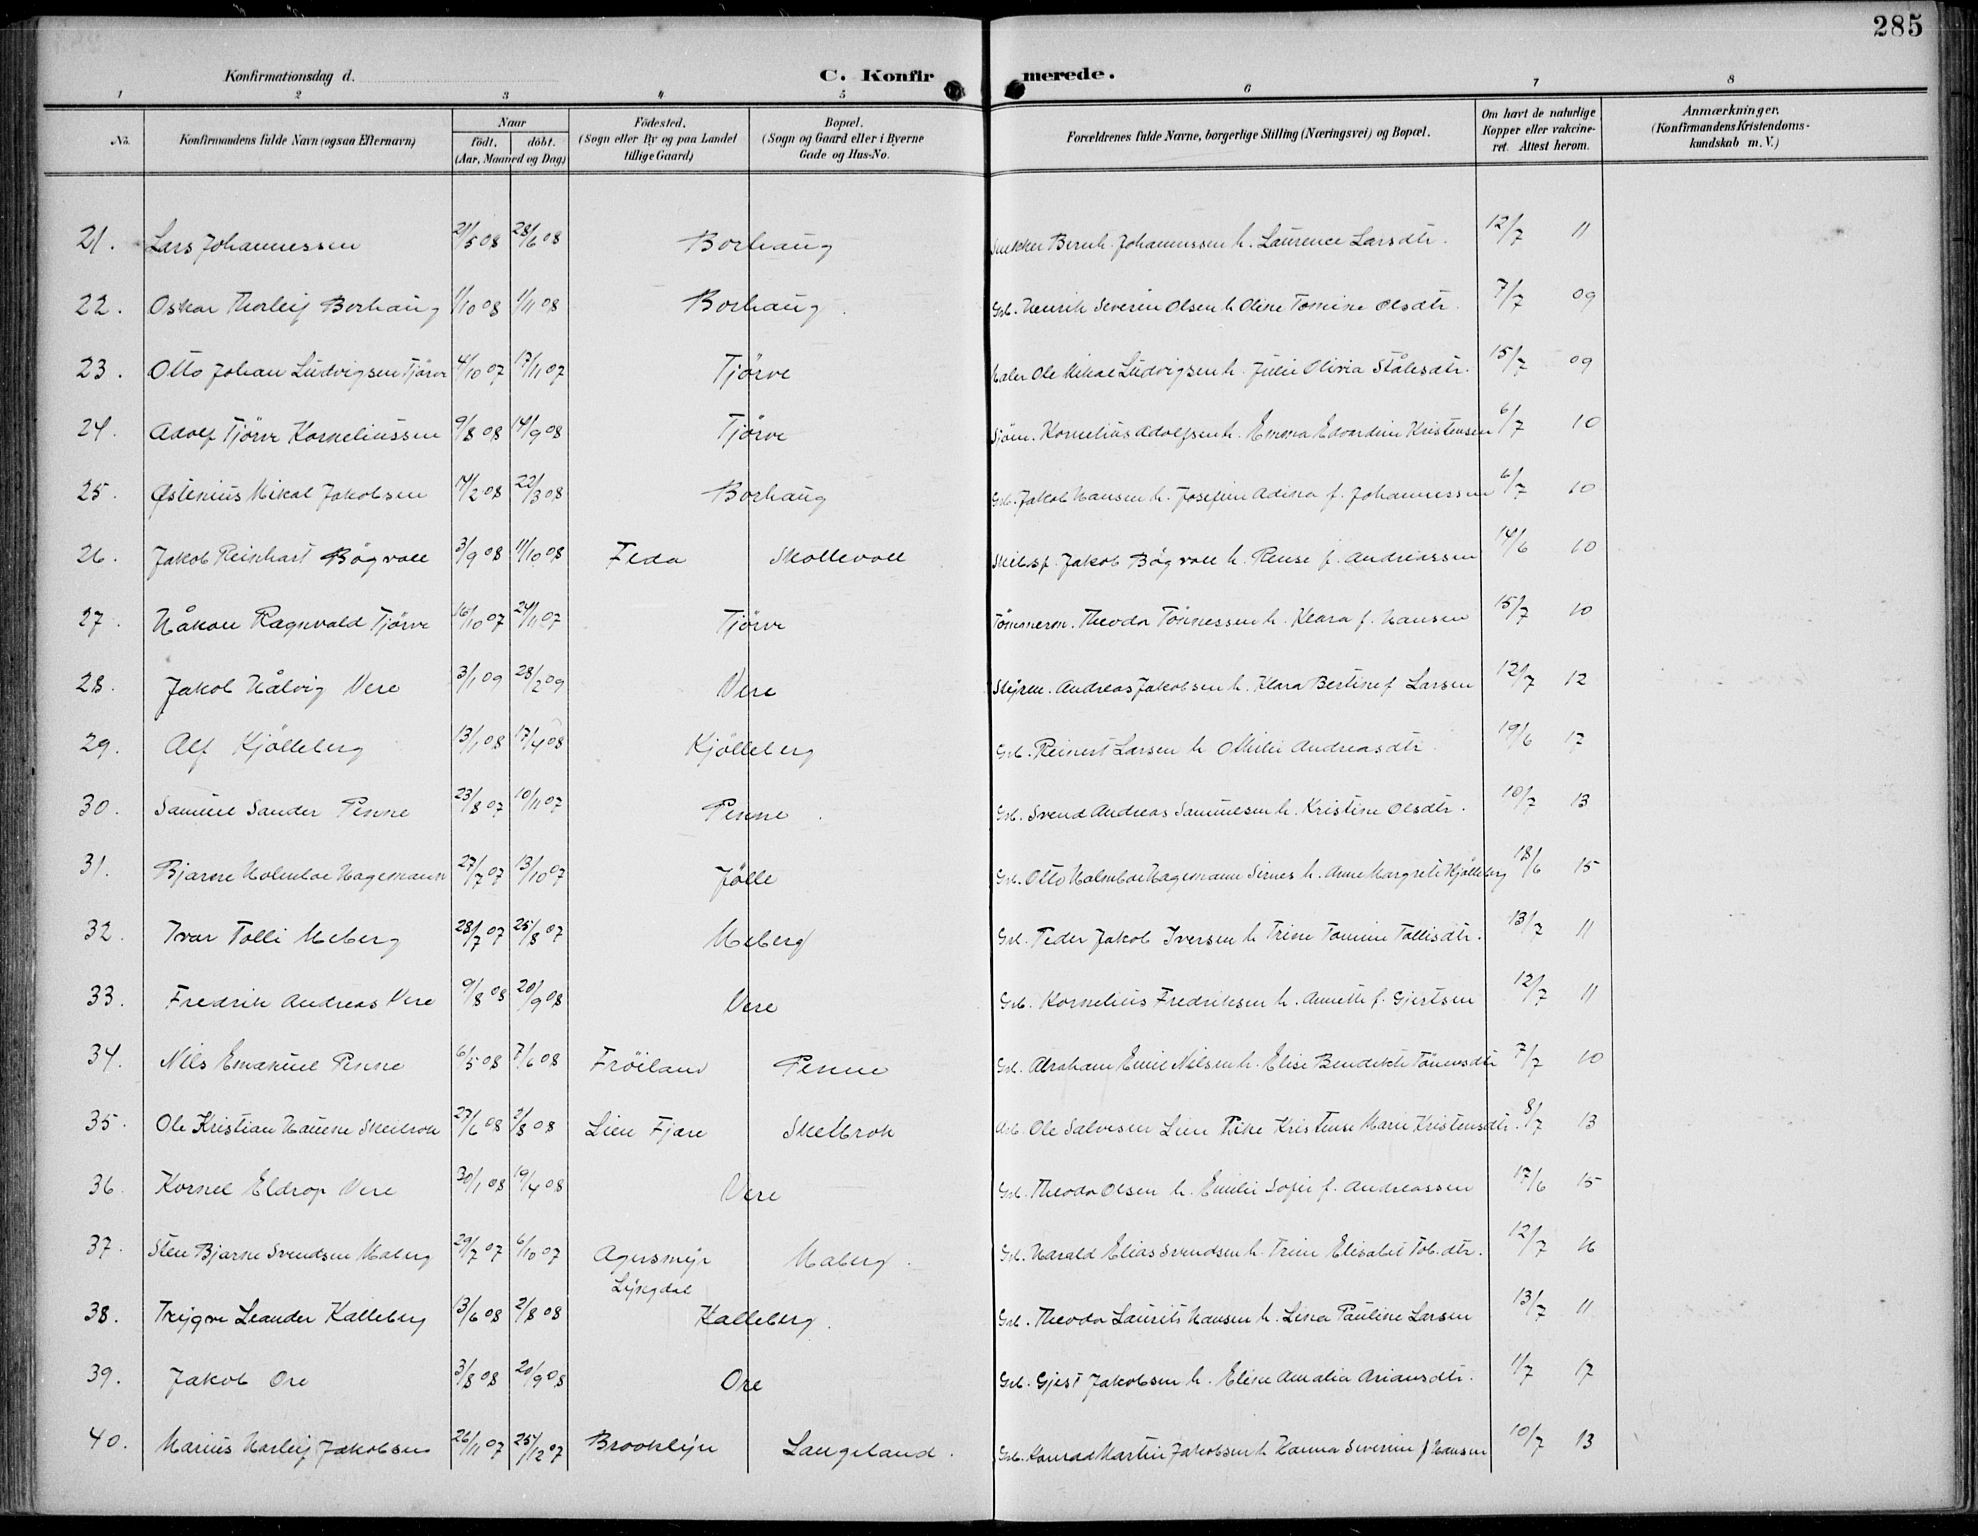 285
Konfirmationsdag d.
C. Konfirmerede.
1 2 3 4 5 6 7 8
No. Konfirmandens fulde Navn (ogsaa Efternavn) Naar født. døbt. (Aar, Maaned og Dag) Födested. (Sogn eller By og paa Landet tillige Gaard) Bopæl. (Sogn og Gaard eller i Byerne Gade og Hus-No. Forældrenes fulde Navne, borgerlige Stilling (Næringsvei) og Bopæl. Om havt de naturlige Kopper eller vakcineret. Attest herom. Anmærkninger. (Konfirmandens Kristendomskundskab m. V.)
21. Lars Johannessen 21/5 08 28/6 08 Borhaug Snekker Bernh. Johannessen h. Laurence Larsdtr. 12/7 11
22. Oskar Thorleif Borhaug 1/10 08 1/11 08 Borhaug Grb. Henrik Severin Olsen h Oline Tomine Olsdtr. 7/7 09
23. Otto Johan Ludvigsen Tjörve 4/10 07 17/11 07 Tjörve Maler Ole Mikal Ludvigsen h. Julie Olivia Ståledtr. 15/7 09
24. Adolf Tjörve Korneliussen 9/8 08 14/9 08 Tjörve Sjöm. Kornelius Adolfsen h. Emma Edvardine Kristensen 6/7 10
25. Østenius Mikal Jakobsen 14/2 08 22/3 08 Borhaug Grb. Jakob Hansen h. Josefine Adina f. Johannessen 6/7 10
26. Jakob Reinhart Bögvall 3/9 08 11/10 08 Feda Skollevoll Skibsf. Jakob Bögvall h. Rense f. Andreassen 14/6 10
27. Håkon Ragnvald Tjörve 16/10 07 24/11 07 Tjörve Tömmerm. Theodor Tönnessen h. Klara f. Hansen 15/7 10
28. Jakob Hålvig Vere 3/1 09 28/2 09 Vere Styrm. Andreas Jakobsen h. Klara Bertine f Larsen 12/7 12
29. Alf Kjölleberg 13/1 08 17/4 08 Kjölleberg Grb. Reinert Larsen h Otilie Andreasdtr. 19/6 17
30. Samuel Sander Penne 23/8 07 10/11 07 Penne Grb. Svend Andreas Samuelsen h. Kristine Olsdtr. 10/7 13
31. Bjarne Holmboe Hagemann 27/7 07 13/10 07 Jölle Grb. Otto Holmboe Hagemann Sirnes h. Anne Margrete Kjölleberg 18/6 15
32. Ivar Tolli Meberg 28/7 07 25/8 07 Meberg Grb. Peder Jakob Iversen h Trine Tomine Tollisdtr. 13/7 11
33. Fredrik Andreas Vere 9/8 08 20/9 08 Vere Grb. Kornelius Fredriksen h. Annette f. Gjertsen 12/7 11
34. Nils Emanuel Penne 6/5 08 7/6 08 Fröiland Penne Grb. Abraham Emil Nilsen h. Elise Bendikte Tönnesdtr 7/7 10
35. Ole Kristian Hauene Skeibrok 27/6 08 2/8 08 Lien Fjære Skeibrok Arb. Ole Salvesen Lien Pike Kristense Marie Kristensdtr. 8/7 13
36. Kornel Eldrop Vere 30/1 08 19/4 08 Vere Grb. Theodor Olsen h. Emilie Sofie f. Andreassen 17/6 15
37. Sten Bjarne Svendsen Maberg 29/7 07 6/10 07 Agersmyr Lyngdal Maberg. Grb. Harald Elias Svendsen h. Trine Elisabet Tob.dtr. 12/7 16
38. Trygve Leander Kalleberg 13/6 08 2/8 08 Kalleberg. Grb. Theodor Laurits Hansen h. Lina Pauline Larsen 13/7 11
39. Jakob Ore 3/8 08 20/9 08 Ore Grb. Gjert Jakobsen h. Eline Amalia Ariansdtr. 1/7 17
40. Marius Harleij Jakobsen 26/11 07 25/12 07 Brooklyn Langeland. Grb. Konrad Martin Jakobsen h Hanna Severine f Hansen 10/7 13